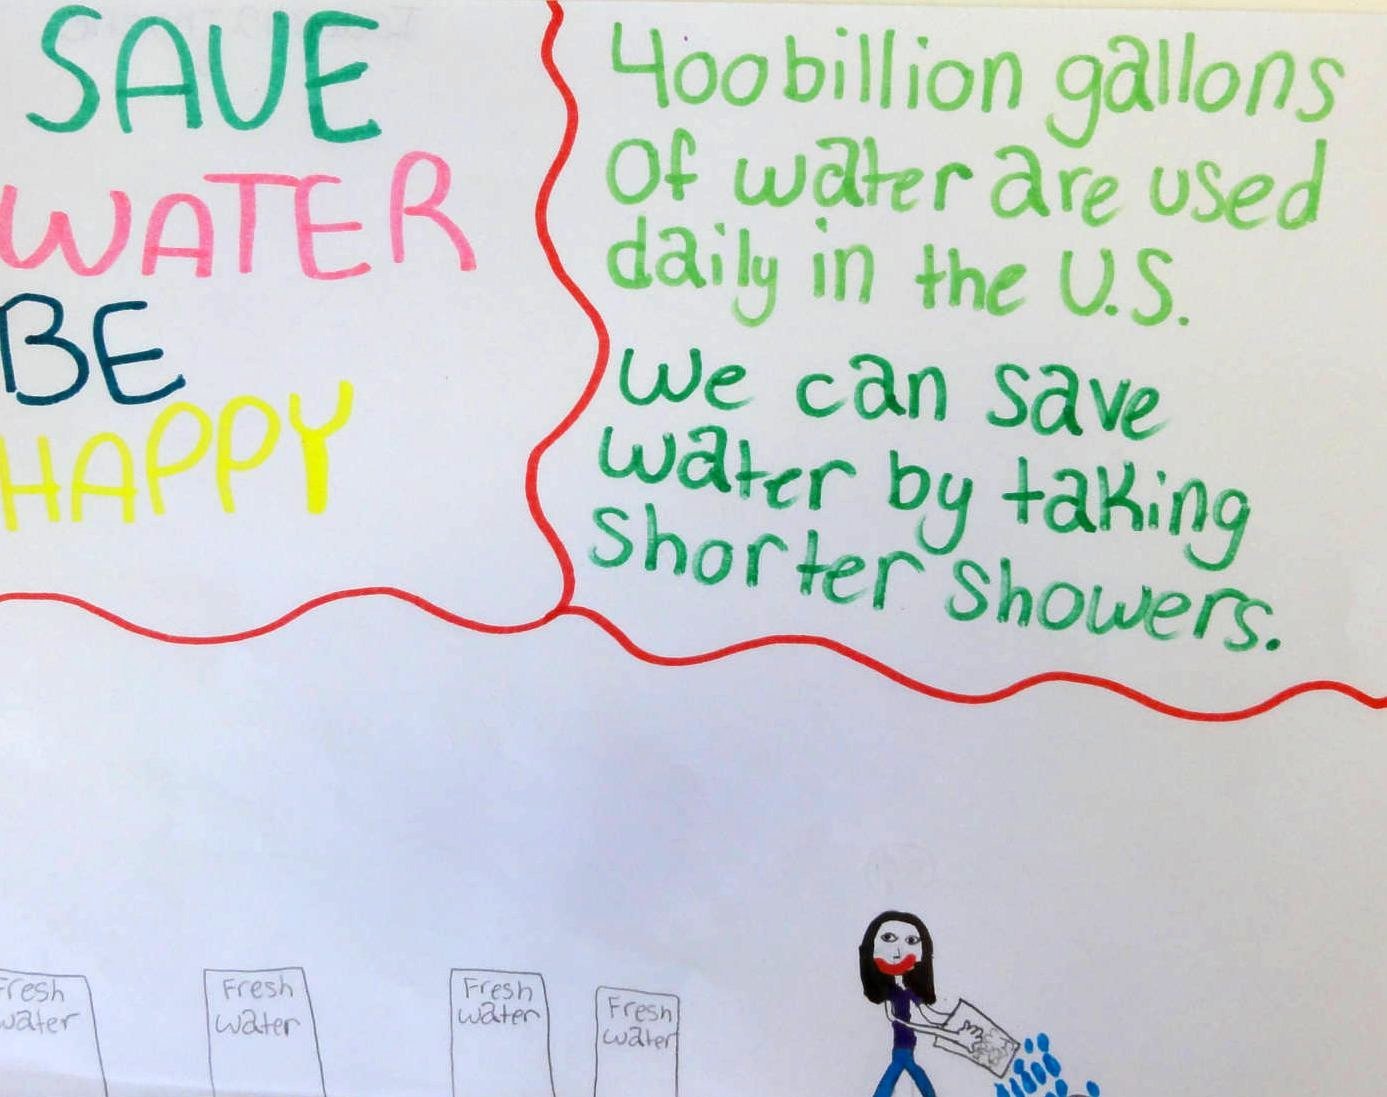 SAVE
WATER
BE
HAPPY
400 billion gallons
of water are used
daily in the U.S.
We can save
water by taking
shorter showers.
Fresh
water
Fresh
water
Fresh
water
Fresh
water